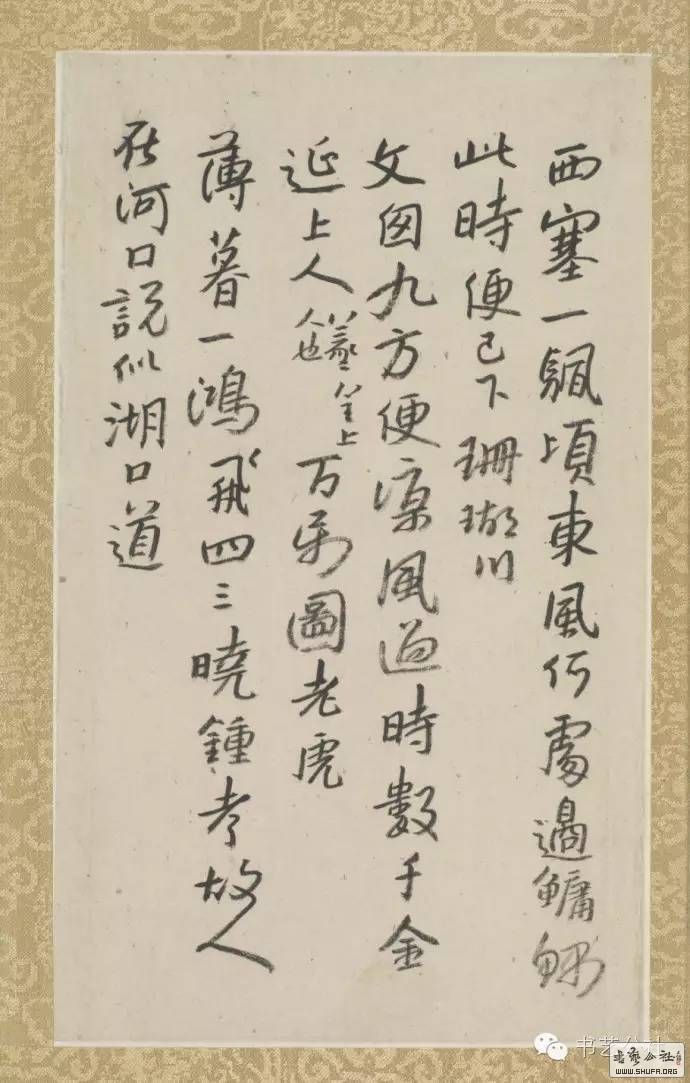 西塞一頃東風何處鱅
此時便已下珊瑚川
文囪九方便涼風過時數千金
延上人人也上百圖老虎
薄暮一鴻飛四三曉鍾孝故人
河口說似湖口道
书艺公社
书艺公社
WWW.SHUFA.ORG